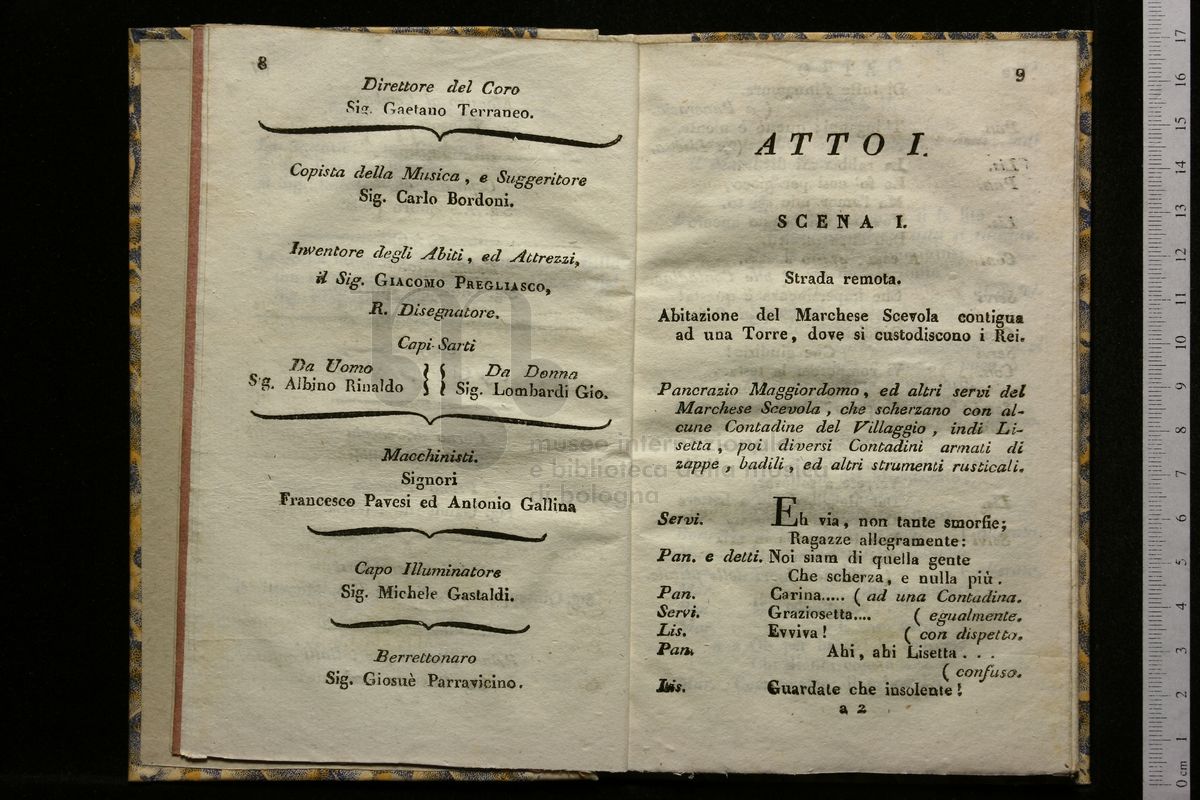 8
Direttore del Coro
Sig. Gaetano Terraneo.
Copista della Musica, e Suggeritore
Sig. Carlo Bordoni.
Inventore degli Abiti, ed Attrezzi,
il Sig. GIACOMO PREGLIASCO,
R. Disegnatore.
Capi-Sarti
Da Uomo
Sig. Albino Rinaldo
Da Donna
Sig. Lombardi Gio.
Macchinisti.
Signori
Francesco Pavesi ed Antonio Gallina
Capo Illuminatore
Sig. Michele Gastaldi.
Berrettonaro
Sig. Giosuè Parravicino.
9
ATTO I.
SCENA I.
Strada remota.
Abitazione del Marchese Scevola contigua
ad una Torre, dove si custodiscono i Rei.
Pancrazio Maggiordomo, ed altri servi del
Marchese Scevola, che scherzano con al-
cune Contadine del Villaggio, indi Li-
setta, poi diversi Contadini armati di
zappe, badili, ed altri strumenti rusticali.
Servi. Eh via, non tante smorfie;
Ragazze allegramente:
Pan. e detti. Noi siam di quella gente
Che scherza, e nulla più.
Pan. Carina..... ( ad una Contadina.
Servi. Graziosetta.... ( egualmente.
Lis. Evviva! ( con dispetto.
Pan. Ahi, ahi Lisetta . . .
( confuso.
Lis. Guardate che insolente!
a 2
museo internazionale
e biblioteca della musica
di bologna
17
16
15
14
13
12
11
10
9
8
7
6
5
4
3
2
1
0 cm